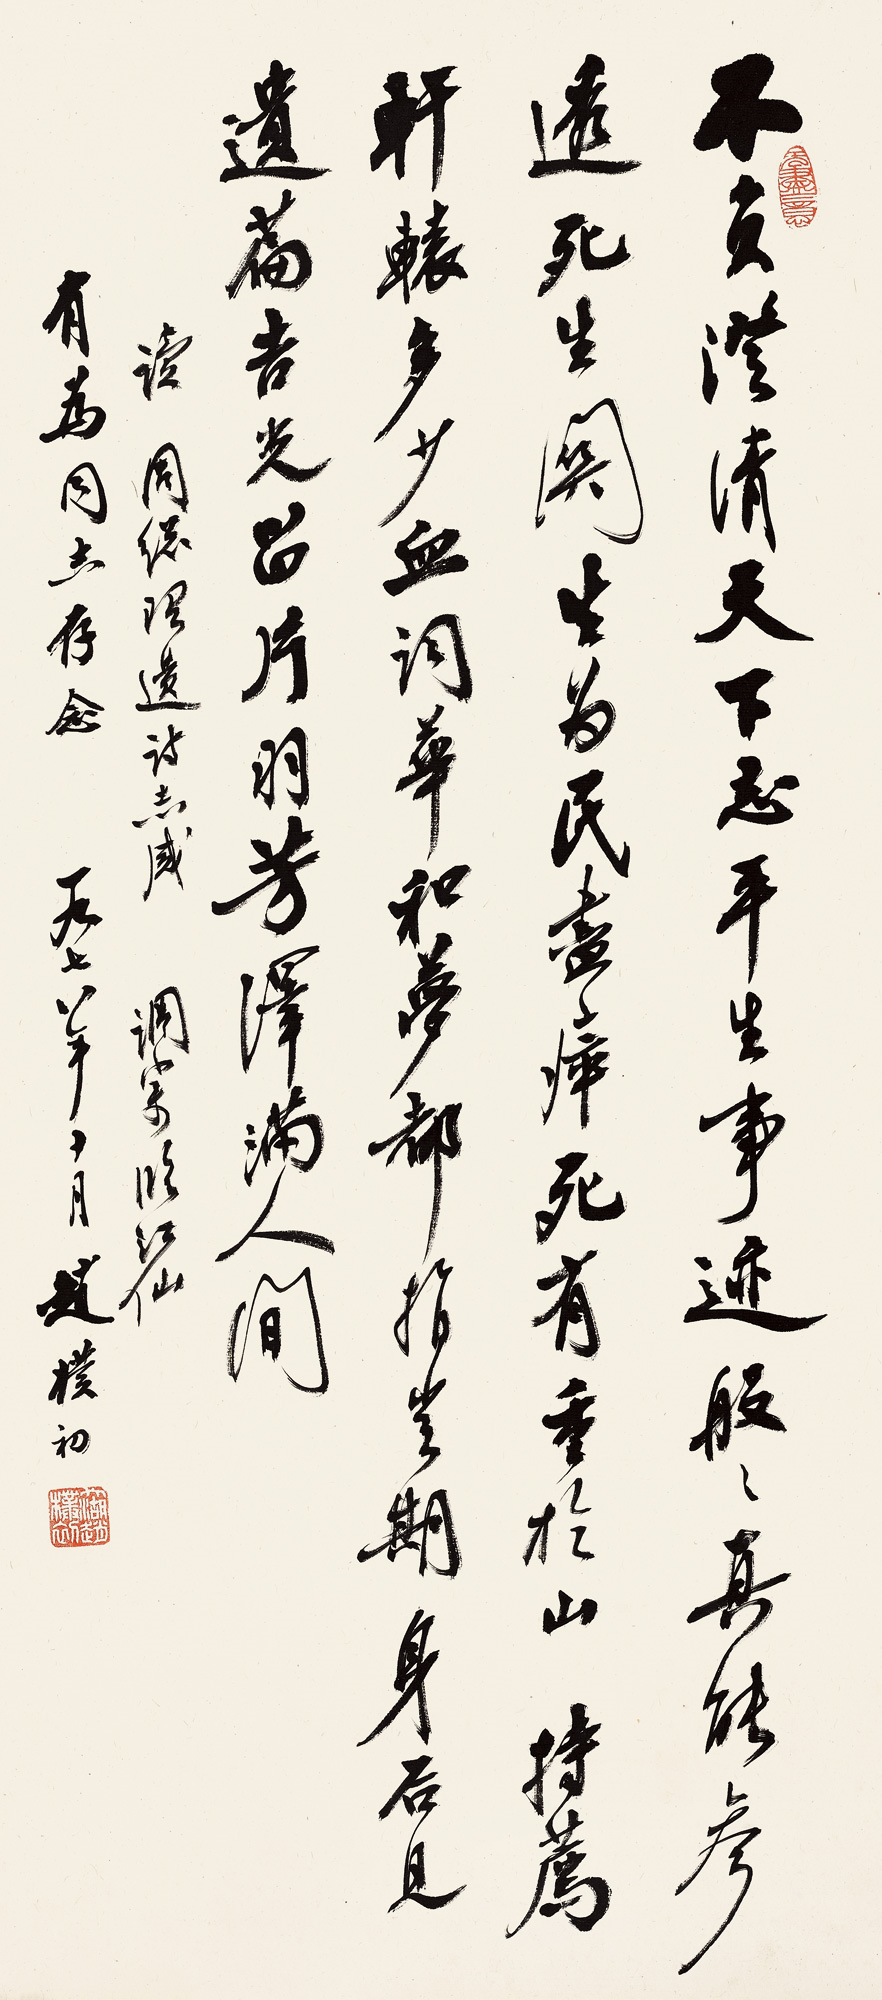 不负澄清天下志平生事迹般々真能参
透死生関生为民尽瘁死有重於山 持荐
轩辕多少血词华和梦都指岂期身后见
遗篇吉光留片羽芳泽满人间
读周总理遗诗志感 调寄临江仙
有为同志存念 一九七八年十月 赵朴初